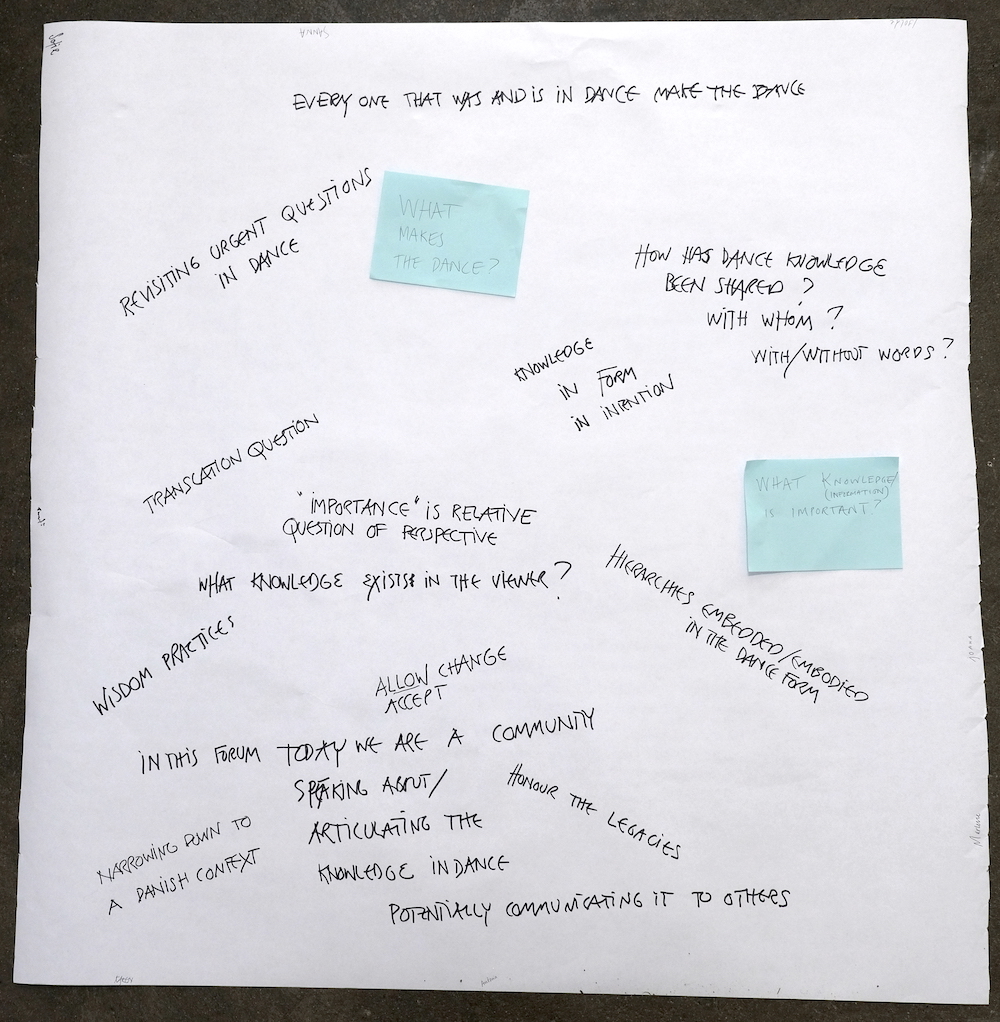 Sofie
SANNA
EVERY ONE THAT WAS AND IS IN DANCE MAKE THE DANCE
REVISITING URGENT QUESTIONS
IN DANCE
WHAT
MAKES
THE DANCE?
HOW HAS DANCE KNOWLEDGE
BEEN SHARED?
WITH WHOM?
WITH/WITHOUT WORDS?
KNOWLEDGE
IN FORM
IN INTENTION
TRANSLATION QUESTION
"IMPORTANCE" IS RELATIVE
QUESTION OF PERSPECTIVE
WHAT KNOWLEDGE/
(INFORMATION)
IS IMPORTANT?
WHAT KNOWLEDGE EXISTS IN THE VIEWER?
HIERARCHIES EMBEDDED/EMBODIED
IN THE DANCE FORM
WISDOM PRACTICES
ALLOW CHANGE
ACCEPT
IN THIS FORUM TODAY WE ARE A COMMUNITY
SPEAKING ABOUT/
ARTICULATING THE
KNOWLEDGE IN DANCE
HONOUR THE LEGACIES
NARROWING DOWN TO
A DANISH CONTEXT
POTENTIALLY COMMUNICATING IT TO OTHERS